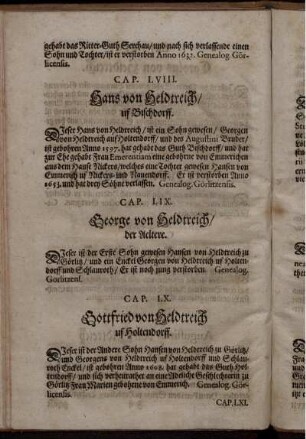 gehabt das Ritter-Guth Seechau/ und nach sich verlassende einen
Sohn und Tochter/ ist er verstorben Anno 1637. Genealog. Gör-
licensis.
CAP. LVIII.
Hans von Heldtreich/
uf Bischdorff.
Dieser Hans von Heldtreich/ ist ein Sohn gewesen/ Georgen
von Heldreich auf Holtendorff/ und des Augustini Bruder/
ist gebohren Anno 1597. hat gehabt das Guth Bischdorff/ und hat
zur Ehe gehabt Frau Emerentiam eine gebohrne von Emmerichen
aus dem Hause Nickern/ welches eine Tochter gewesen Hansen von
Emmerich uf Nickern und Nauendorff. Er ist verstorben Anno
1653. und hat drey Söhne verlassen. Genealog. Görlitzensis.
CAP. LIX.
George von Heldtreich/
der Aeltere.
Dieser ist der Erste Sohn gewesen Hansen von Heldtreich zu
Görlitz/ und ein Enckel Georgen von Heldtreich uf Holten-
dorff und Schlauroth/ Er ist noch jung verstorben. Genealog.
Görlitzens.
CAP. LX.
Gottfried von Heldtreich
uf Holtendorff.
Dieser ist der Andere Sohn Hansen von Heldtreich zu Görlitz/
und Georgens von Heldtreich uf Holtendorff und Schlau-
roth Enckel/ ist gebohren Anno 1608. hat gehabt das Guth Hol-
tendorff/ und sich verheurathet an eine Adeliche Geschlechterin zu
Görlitz Frau Marien gebohrne von Emmerich. Genealog. Gör-
licensis.
CAP. LXI.